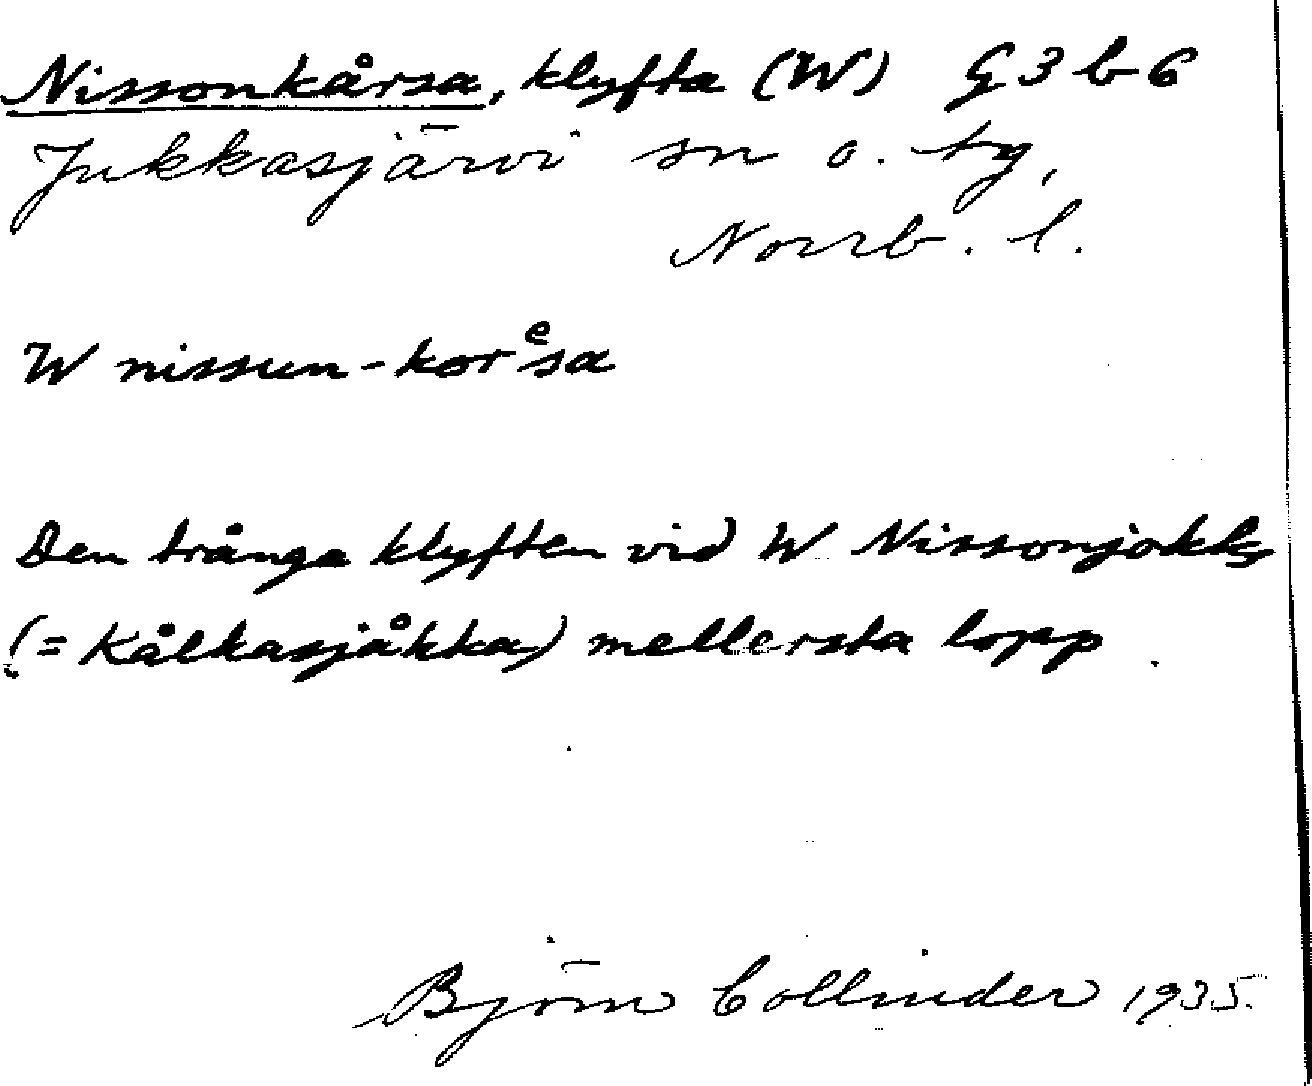 Nissonkårsa, klyfta (W) G 3 b 6
Jukkasjärvi sn o. tg,
Norrb. l.
W nissun-korᵉsa
Den trånga klyften vid W Nissonjokks
(= Kålkasjåkka) mellersta lopp.
Björn Collinder 1935.